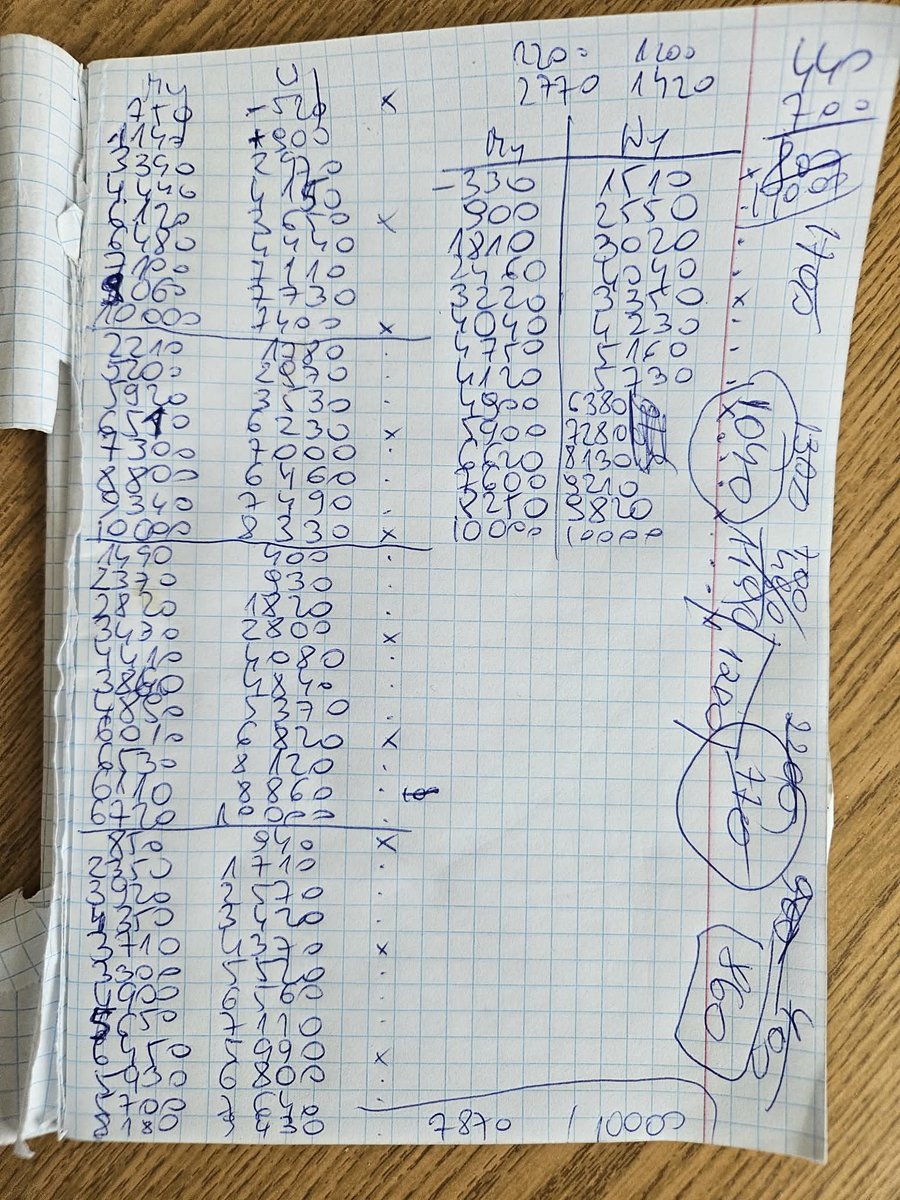 My Wy
750 -520 x
1147 +900
3390 2970
4440 4150
6120 3650 x
6480 4440
7100 7110
9060 7730
10000 7400 x
2210 1780 .
5200 2870 .
5920 3530 .
6510 6230 x
7300 7000 .
8800 6460 .
9340 7490 .
10000 8330 x
1490 400 .
2370 930 .
2820 1820 .
3470 2800 x
4410 4080 .
3840 4840 .
4850 5370 .
6010 6820 x
6530 8120 .
6110 8860 .
6720 10000 .
850 940 x
2350 1710 .
3920 2570 .
4350 3420 .
3710 4370 x
3300 5520 .
4900 6560 .
5650 7110 .
6450 5990 x
5930 6800 .
5700 7640 .
8180 9430 .
7870 / 10000
2200 1200
2770 1420
My Wy
-330 1510 x
900 2550 .
1810 3020 .
2460 4040 .
3220 3350 x
4040 4230 .
4750 5160 .
4120 5730 .
4900 6380
5900 7280
6620 8130
7600 9210
8250 9820
10000 10000
440
700
1700
1300
1040
700
480
1180
1220
2200
770
980
400
860